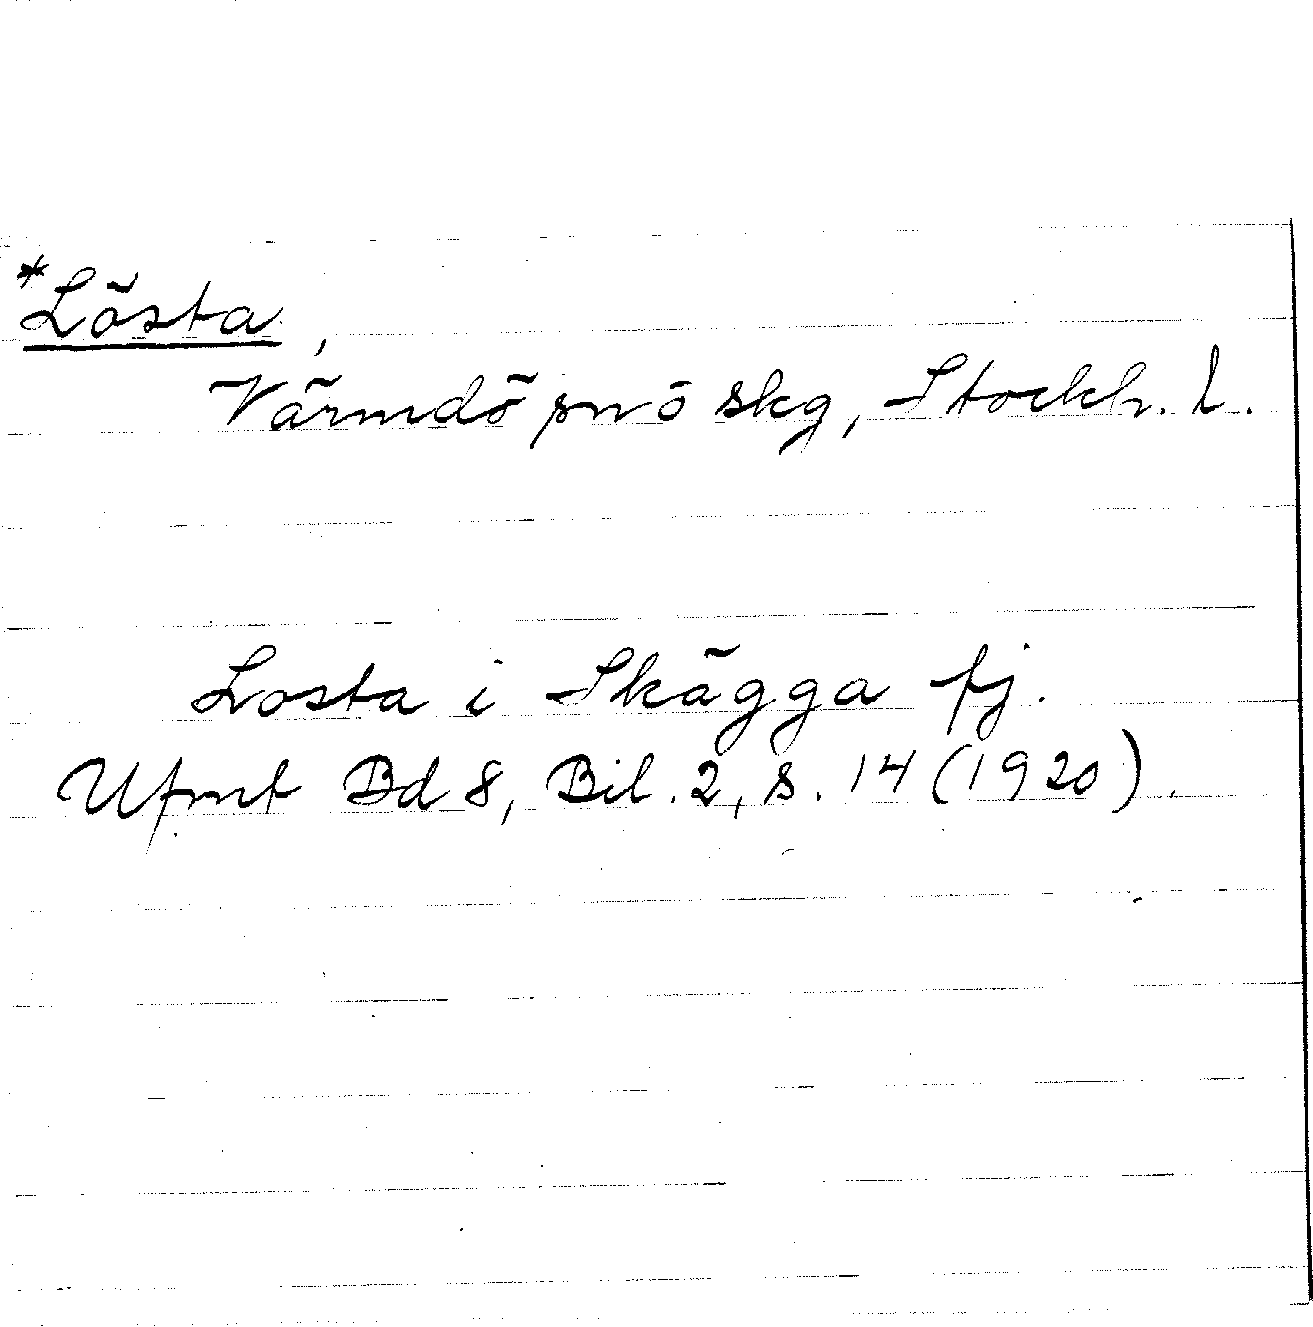 *Lösta,
Värmdö sn o skg, Stockh. l.
Losta i Skägga fj.
Ufmt Bd 8, Bil. 2, s. 14 (1920).